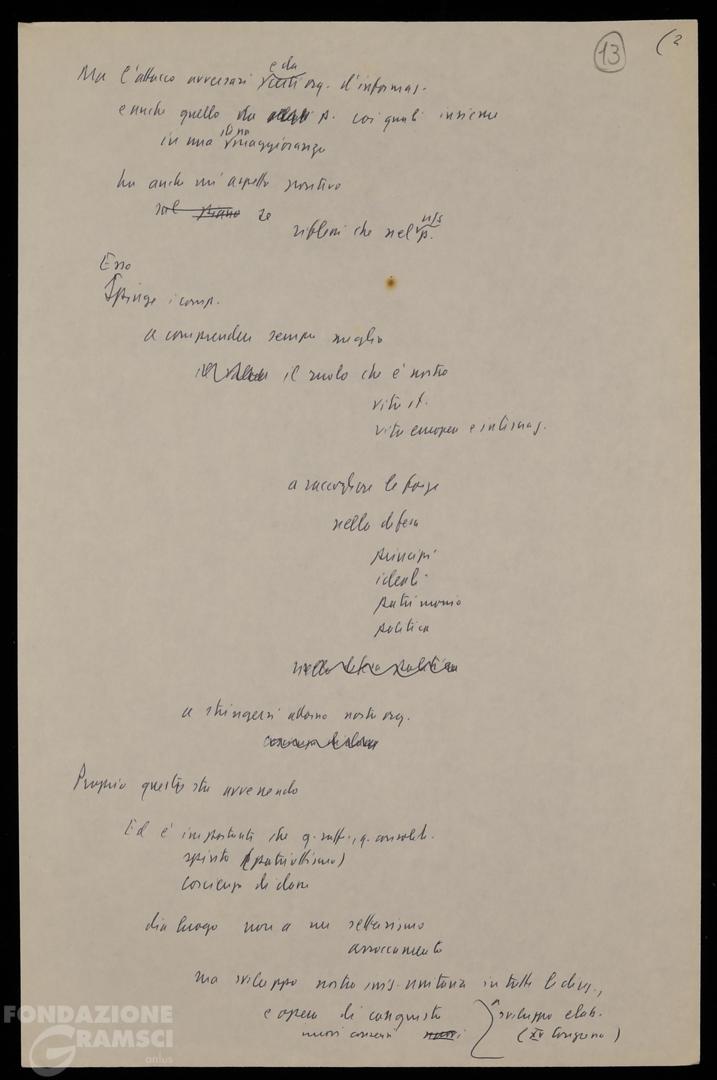 13
(2
Ma l'attacco avversari e da certi org. d'informaz.
e anche quello da p. coi quali insieme
in una maggioranza
ha anche un' aspetto positivo
sul piano se
riflessi che nel ns p.
Esso
Spinge i comp.
a comprendere sempre meglio
il ruolo che è nostro
vita it.
vita europea e internaz.
a raccogliere le forze
nella difesa
principi
ideali
patrimonio
politica
nella difesa politica
a stringersi attorno nostre org.
Proprio questo sta avvenendo
Ed è importante che q. raff., q. consolid.
spirito (patriottismo)
coscienza di classe
dia luogo non a un settarismo
arroccamento
ma sviluppo nostra iniz. unitaria in tutte le direz.,
e opera di conquista
nuovi consensi
sviluppo elab.
(XV Congresso)
FONDAZIONE
GRAMSCI
onlus